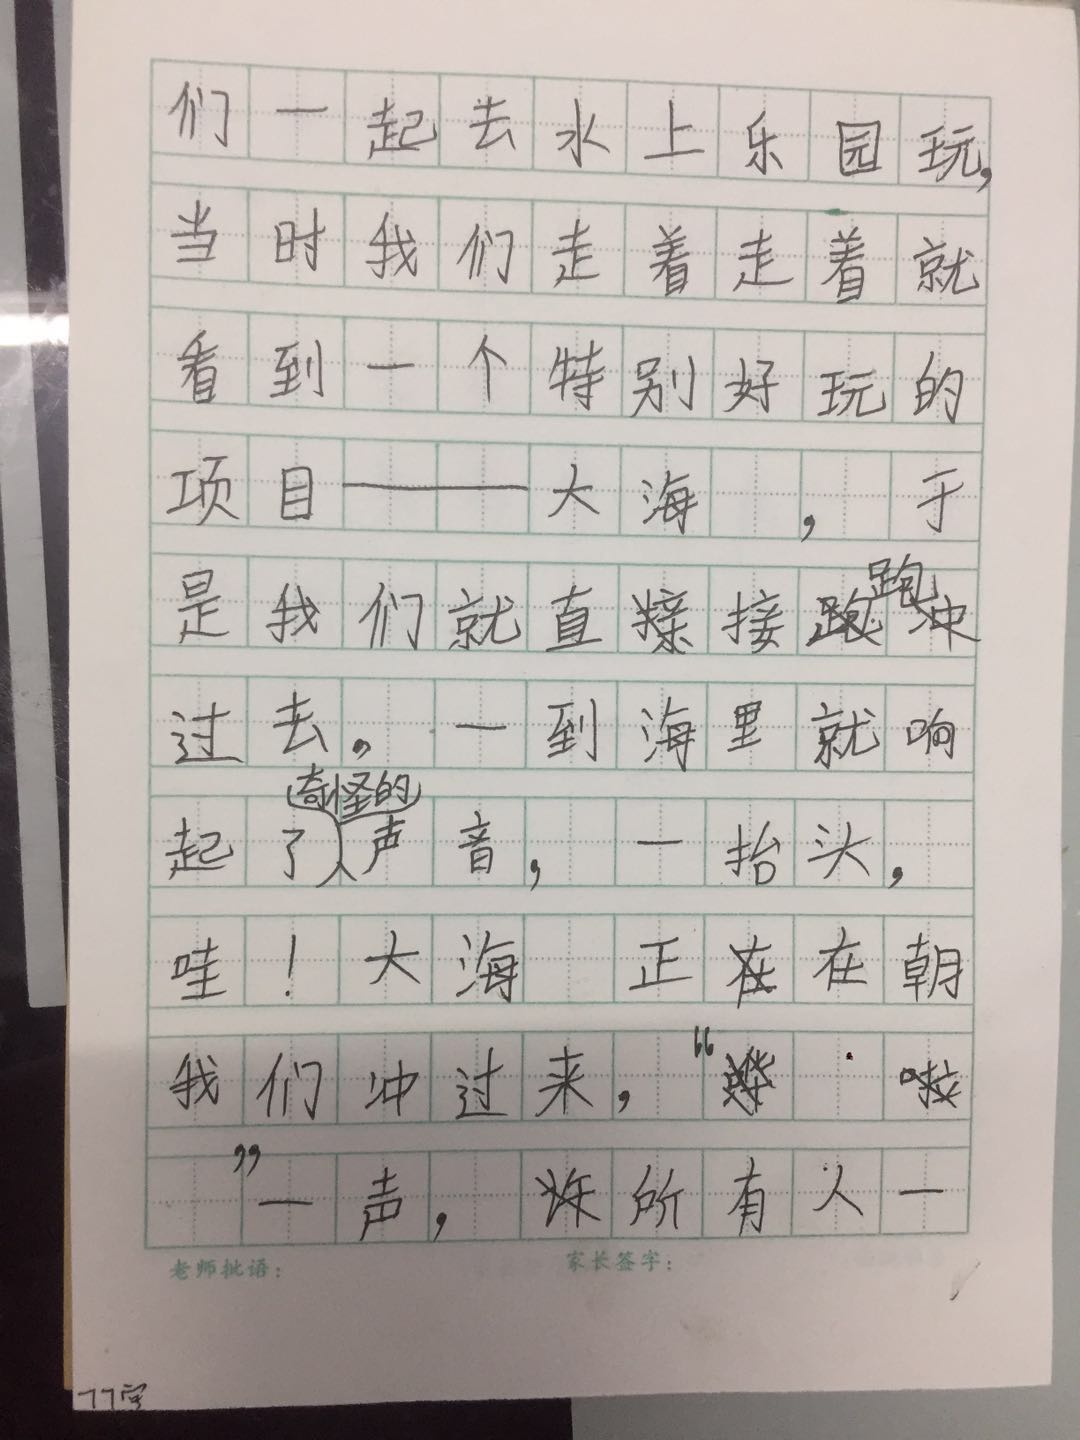 们一起去水上乐园玩，
当时我们走着走着就
看到一个特别好玩的
项目——大海，于
是我们就直接跑冲
过去。一到海里就响
起了奇怪的声音，一抬头，
哇！大海正在朝
我们冲过来，“啦
”一声，所有人一
老师批语： 家长签字：
77字